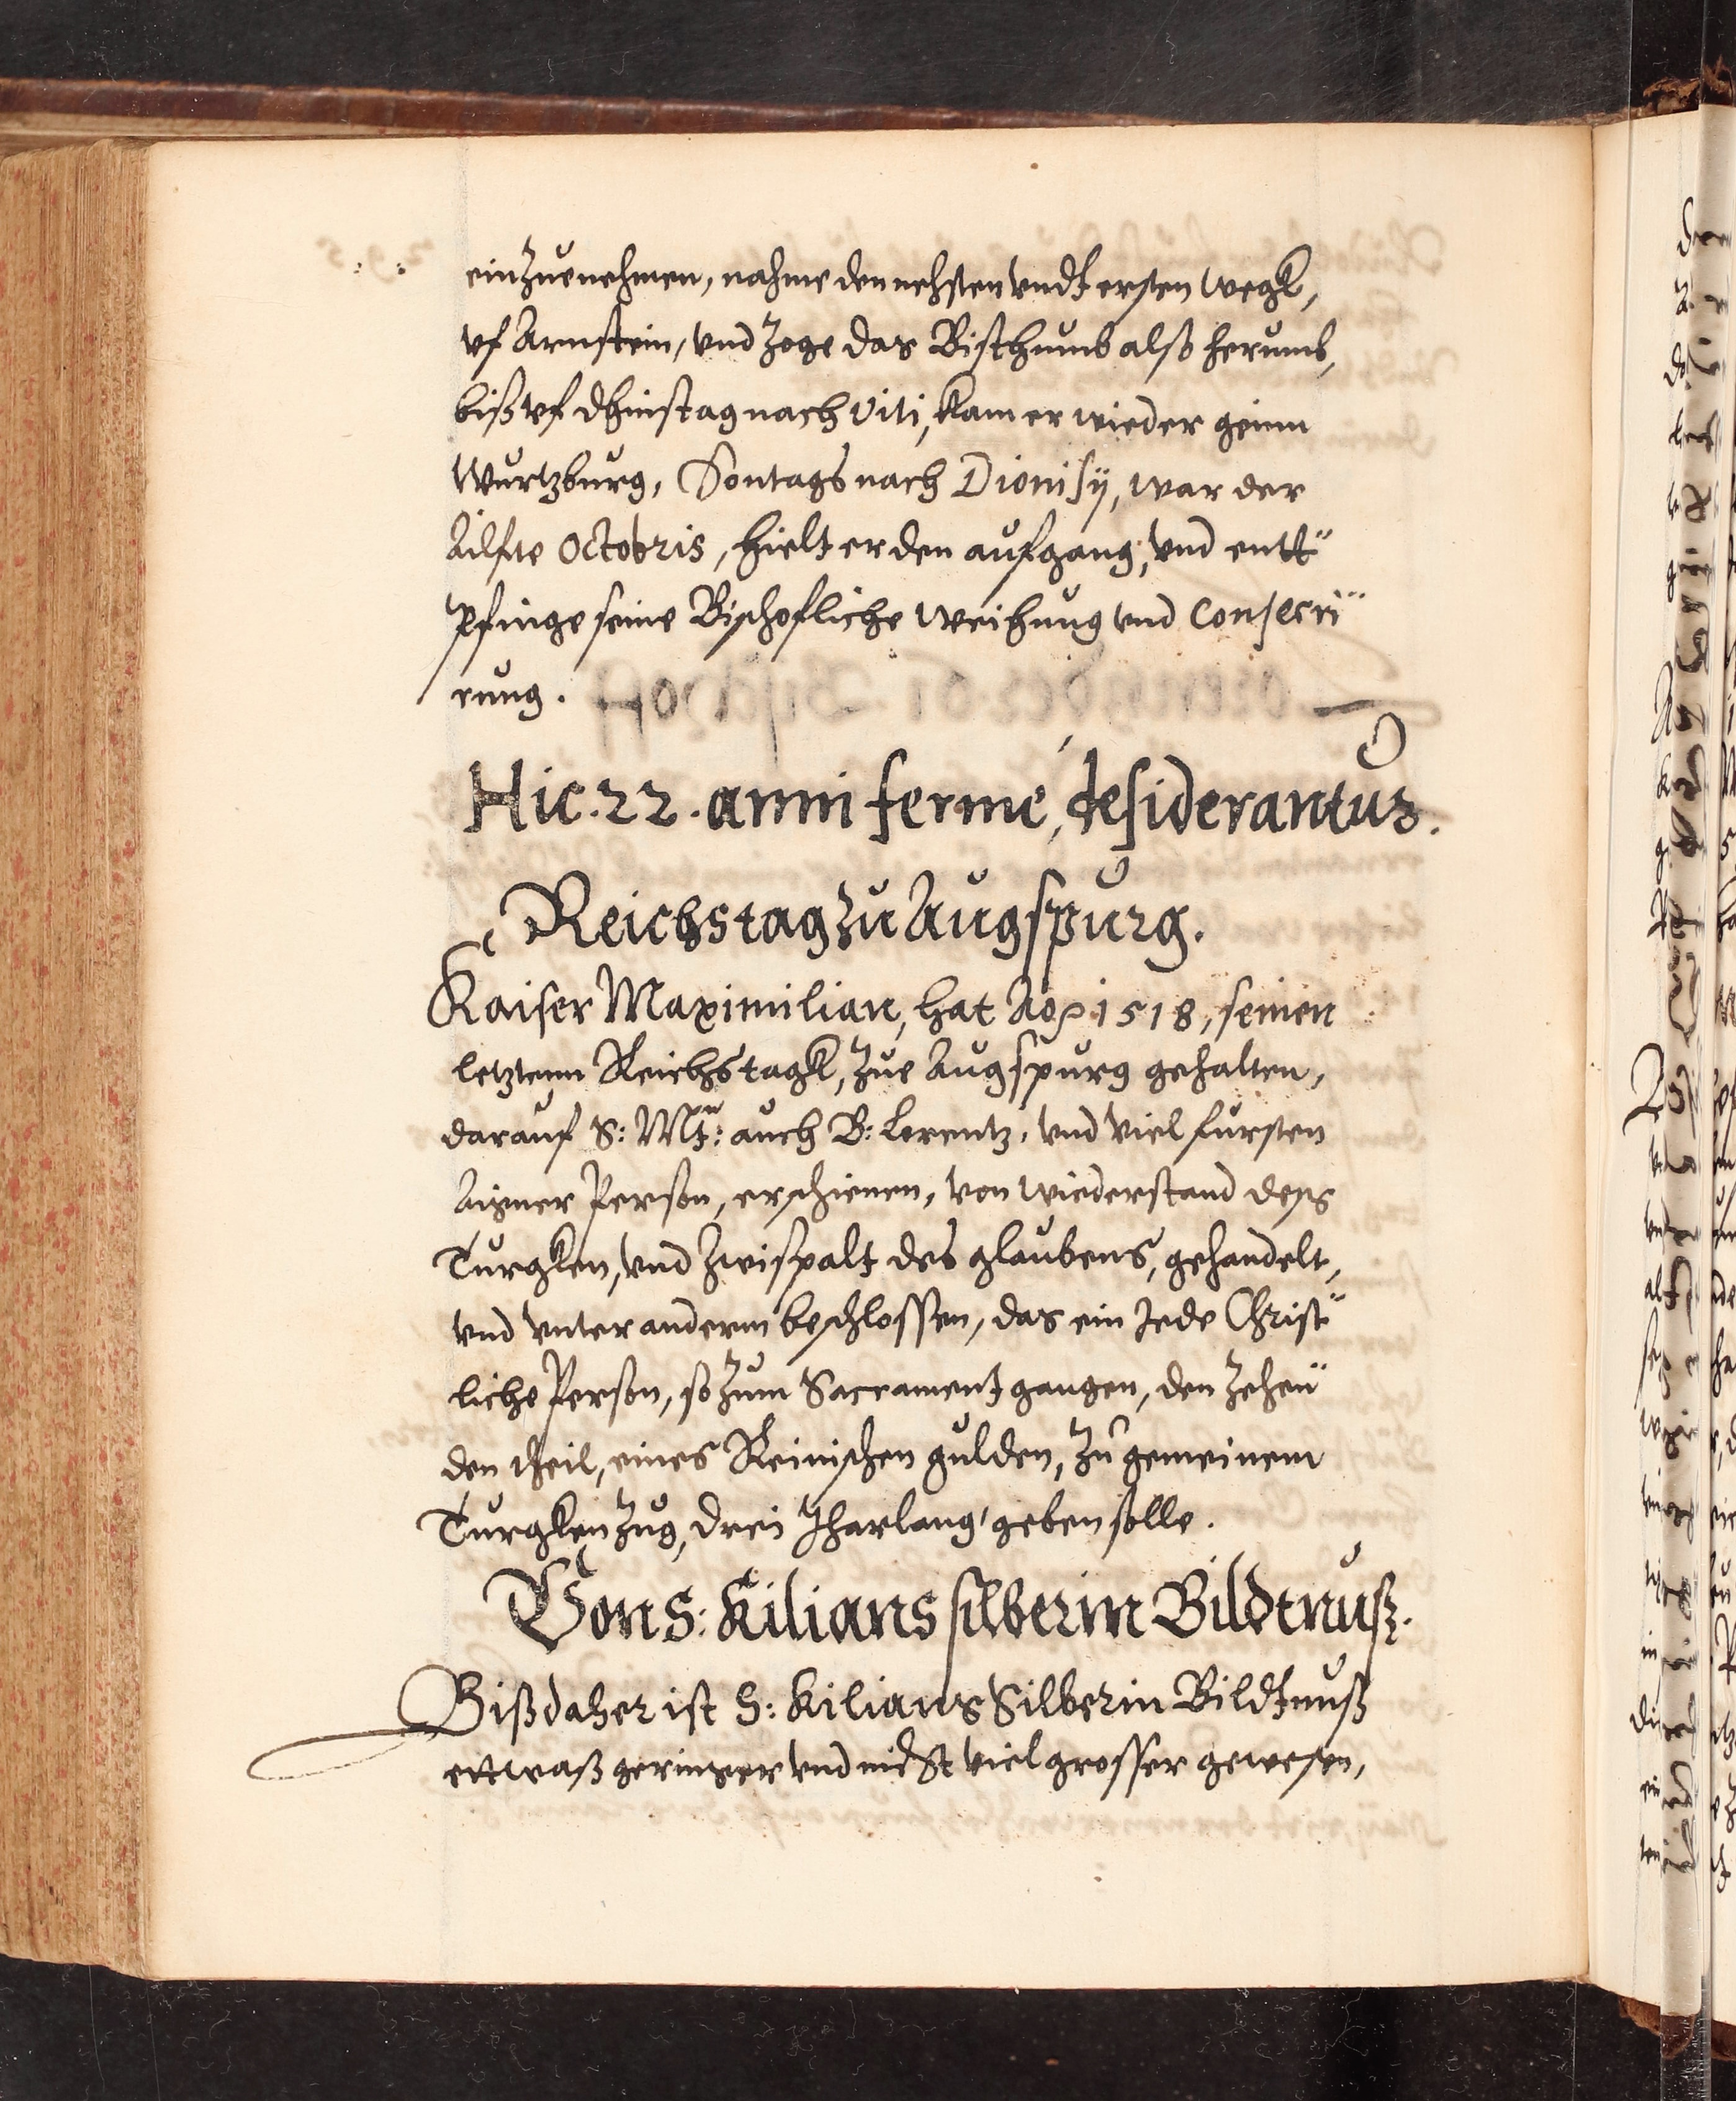 einzuenehmen, nahme den nehsten vndt ersten wegk,
vf Arnstein, vnd zoge das Bisthumb also herumb,
biß vf dhinstag nach Viti, kam er wieder geinn
Wurtzburg, Sontags nach Dionisÿ, war der
Ailfte Octobris, hielt er den aufgang, vnd entt"
pfinge seine Bischofliche weihung vnd Consecri"
rung.
Hic. 22. anni fermè, desiderantur.
Reichstag zu Augspurg.
Kaiser Maximilian, hat Ao 1518, seinen
letztenn Reichstagk, zue Augspurg gehalten,
darauf S: Mt: auch B: Lorentz, vnd viel fursten
Aigner Person, erschienen, von wiederstand dess
Turgken, vnd zwispalt des glaubens, gehandelt,
vnd vnter anderm beschlossen, das ein Jede Christ"
liche Person, so zum Sacrament gangen, den zehen"
den theil, eines Reinischen gulden, zu gemeinem
Turgkenzug, drei Jharlang, geben solle.
Von S: Kilians silberin Bildtnuß.
Bißdaher ist S: Kilians Silberin Bildtnuß
ettwaß geringer vnd nicht viel grosser gewesen,